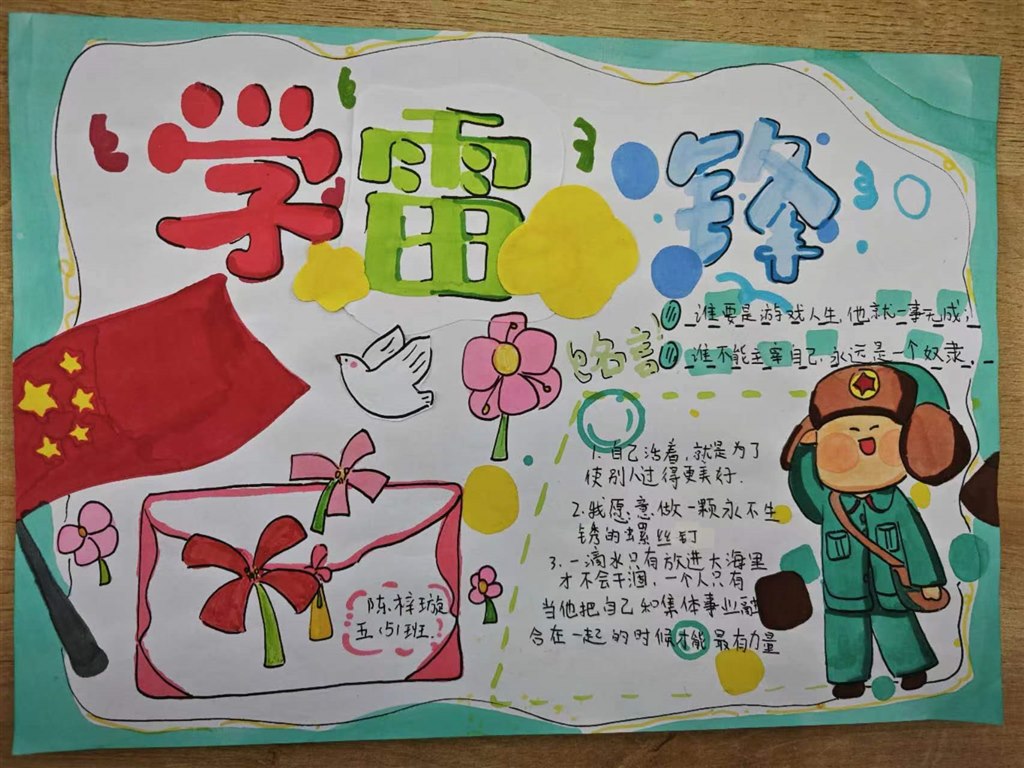 学雷锋
谁要是游戏人生,他就一事无成;
名言
谁不能主宰自己,永远是一个奴隶.
1.自己活着,就是为了
使别人过得更美好.
2.我愿意做一颗永不生
锈的螺丝钉
3.一滴水只有放进大海里
才不会干涸,一个人只有
当他把自己和集体事业融
合在一起的时候才能最有力量
陈梓璇
五(5)班.